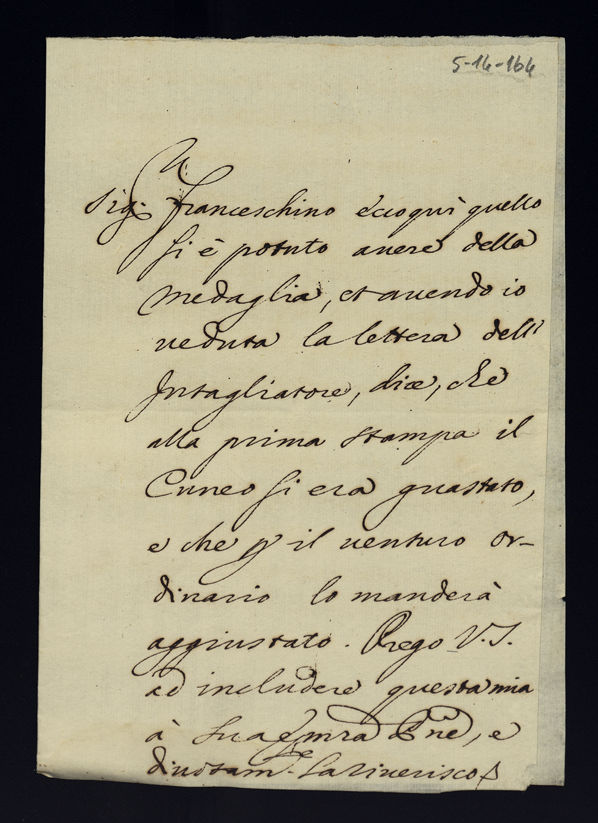 5-14-164
Sig: Franceschino eccoqui quello
si è potuto avere della
Medaglia, et avendo io
veduta la lettera dell'
Intagliatore, dice, che
alla prima stampa il
Cuneo si era guastato,
e che p il venturo or-
dinario lo manderà
aggiustato. Prego V.S.
ad includere questa mia
à Sua Emza, e
divotam.te la riverisco